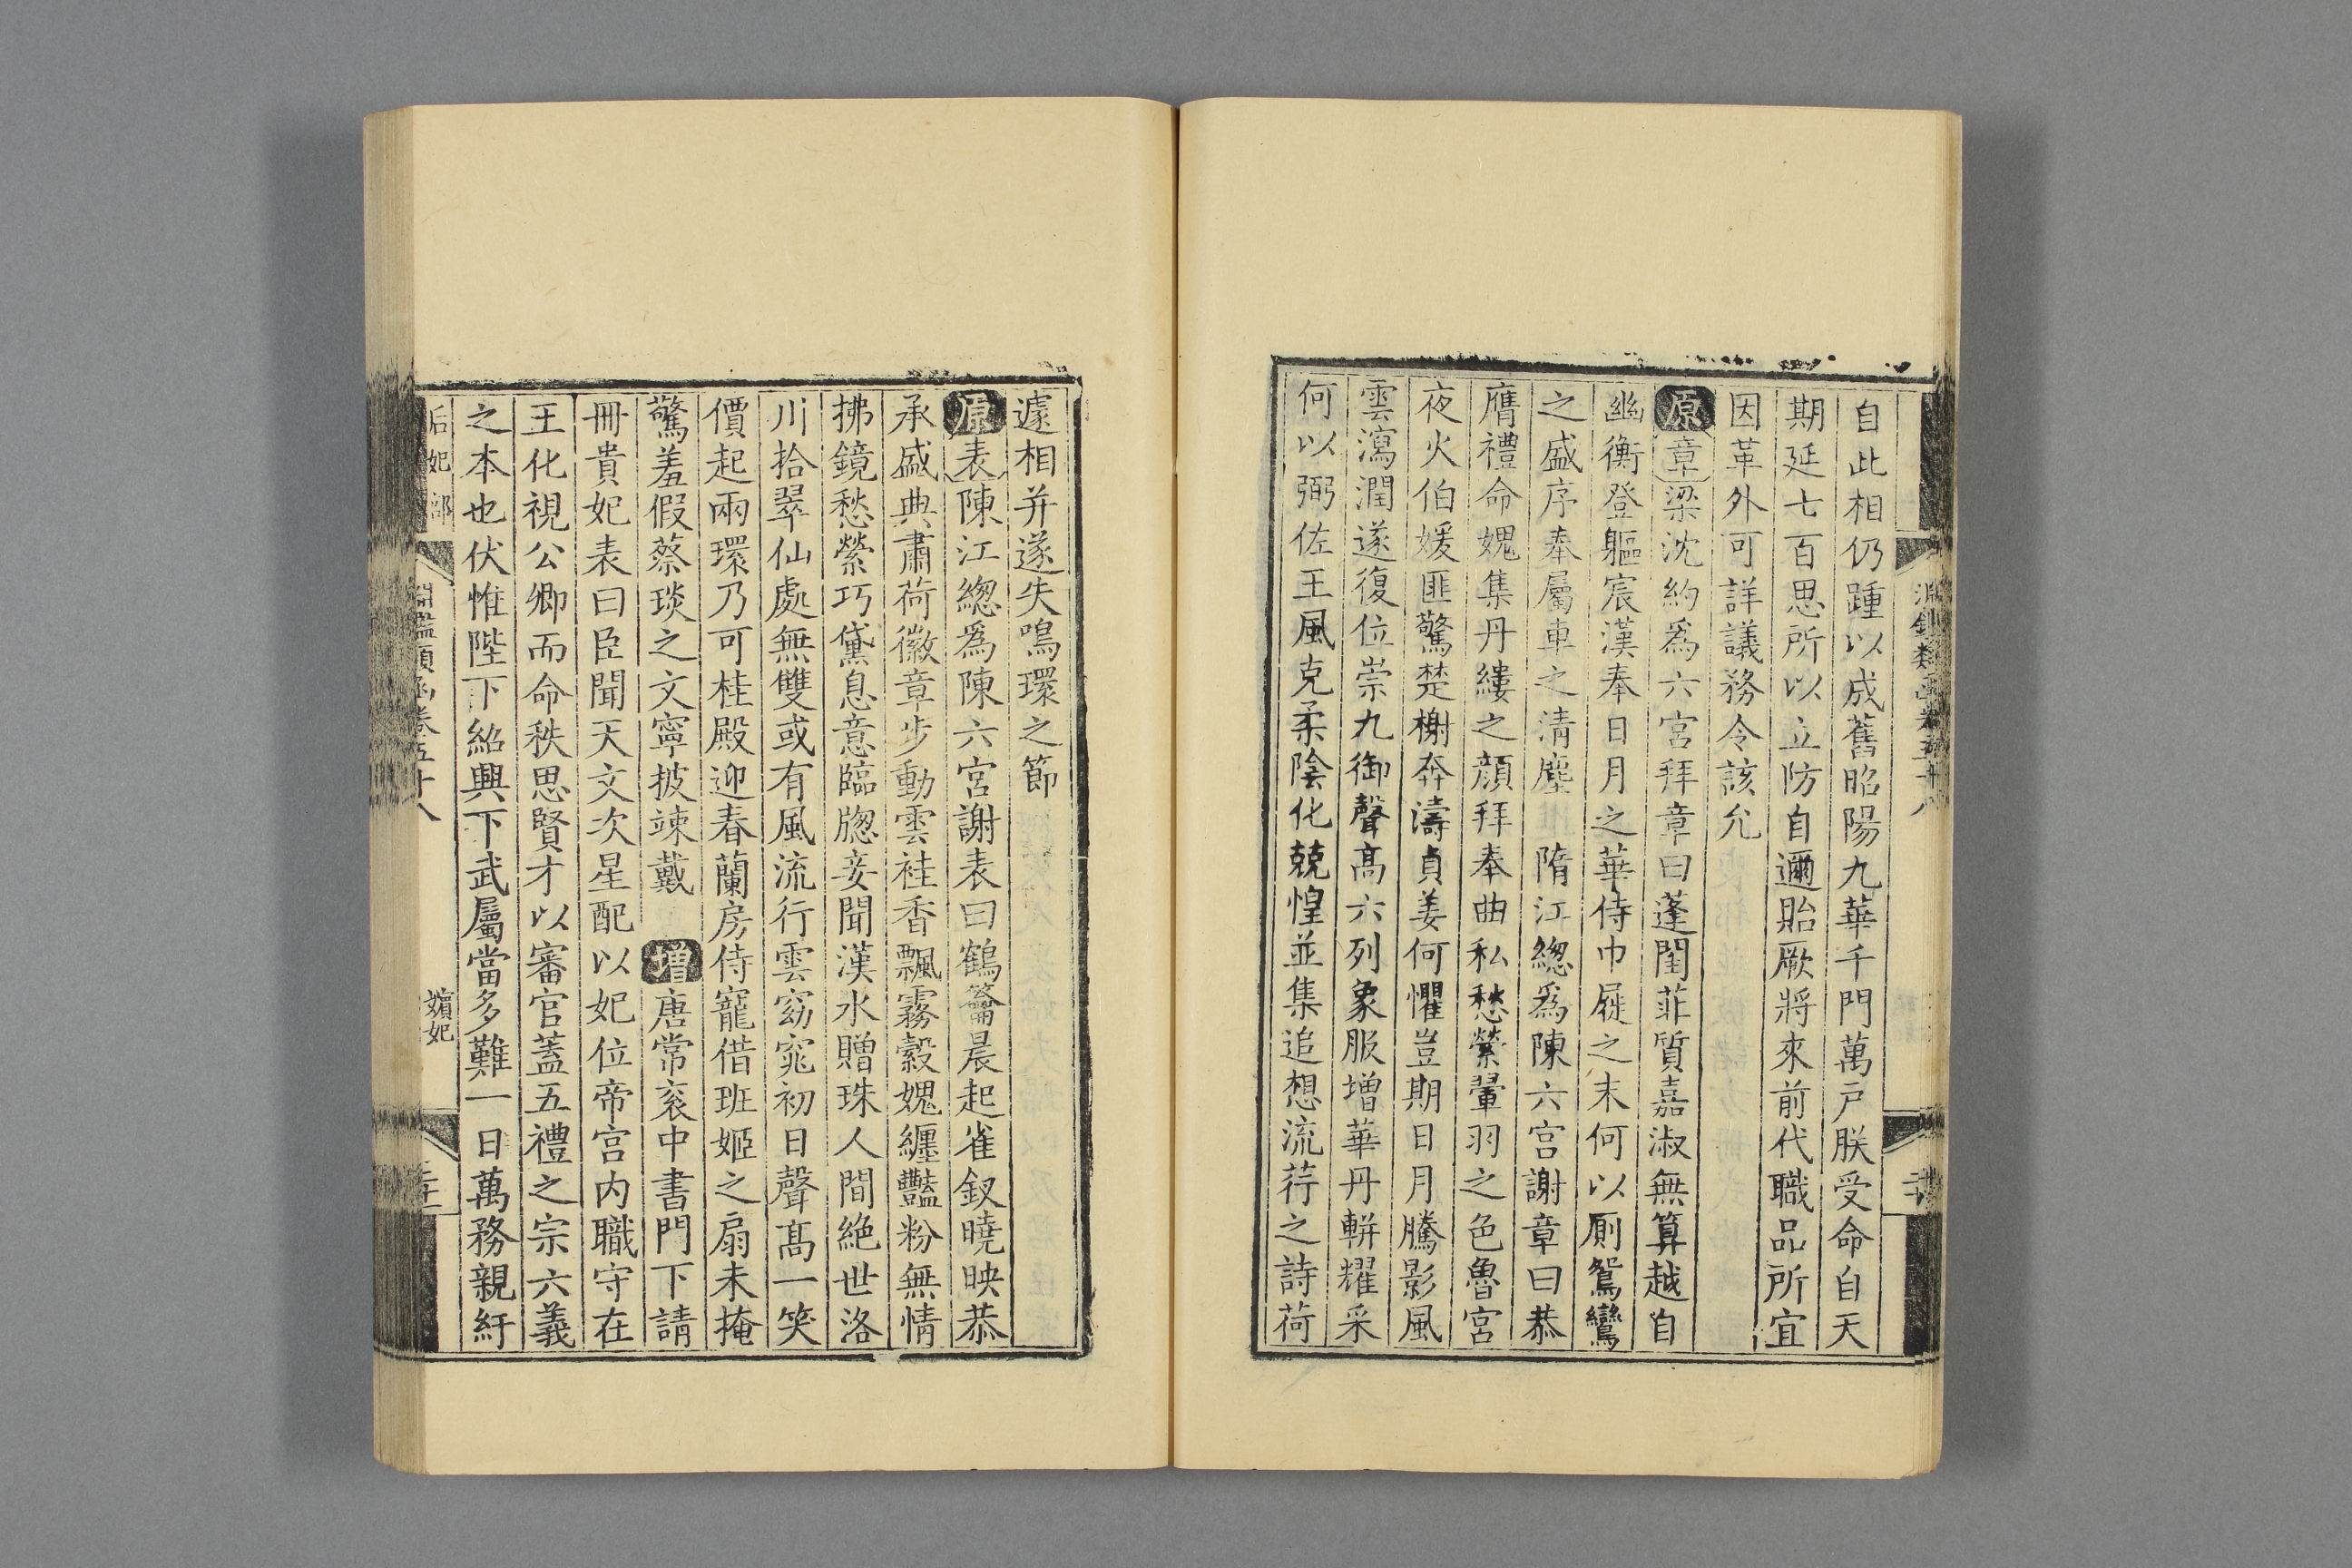 淵鑑類函卷五十八
自此相仍踵以成舊昭陽九華千門萬戸朕受命自天
期延七百思所以立防自邇貽厥將來前代職品所宜
因革外可詳議務令該允
原章梁沈約爲六宮拜章曰蓬閨菲質嘉淑無算越自
幽衡登軀宸漢奉日月之華侍巾屣之末何以厠鴛鸞
之盛序奉屬車之清塵 隋江緫爲陳六宮謝章曰恭
膺禮命媿集丹縷之顔拜奉曲私愁縈翬羽之色魯宮
夜火伯媛匪驚楚榭奔濤貞姜何懼豈期日月騰影風
雲瀉潤遂復位崇九御聲髙六列象服增華丹軿耀采
何以弼佐王風克柔陰化兢惶並集追想流荇之詩荷
遽相并遂失鳴環之節
原表陳江緫爲陳六宮謝表曰鶴籥晨起雀釵曉映恭
承盛典肅荷徽章步動雲袿香飄霧縠媿纏豔粉無情
拂鏡愁縈巧黛息意臨牎妾聞漢水贈珠人間絶世洛
川拾翠仙處無雙或有風流行雲窈窕初日聲髙一笑
價起兩環乃可桂殿迎春蘭房侍寵借班姬之扇未掩
驚羞假蔡琰之文寧披竦戴 增唐常衮中書門下請
冊貴妃表曰臣聞天文次星配以妃位帝宮内職守在
王化視公卿而命秩思賢才以審官蓋五禮之宗六義
之本也伏惟陛下紹興下武屬當多難一日萬務親紆
后妃部
淵鑑類函卷五十八
嬪妃